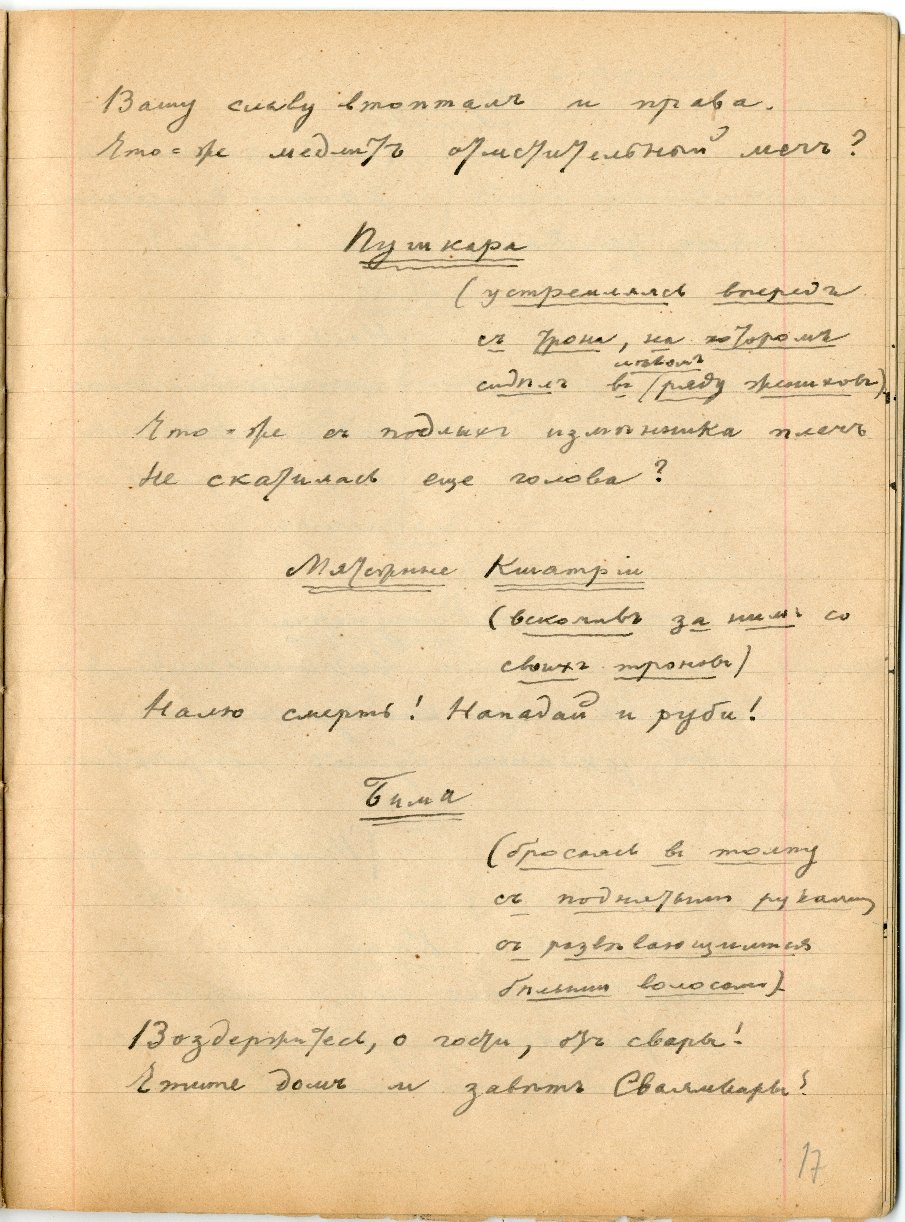 Вашу славу втопталъ и права.
Что-же медлитъ отмстительный мечъ?
Пушкара
(устремляясь впередъ
съ трона, на которомъ
сидѣлъ въ лѣвомъ ряду жениховъ)
Что-же съ подлыхъ измѣнника плечъ
Не скатилась еще голова?
Мятежные Кшатріи
(вскочивъ за нимъ со
своихъ троновъ)
Налю смерть! Нападай и руби!
Бима
(бросаясь въ толпу
съ поднятыми руками
съ развѣвающимися
бѣлыми волосами)
Воздержитесь, о гости, отъ свары!
Чтите домъ и завѣтъ Сваямвары!
17